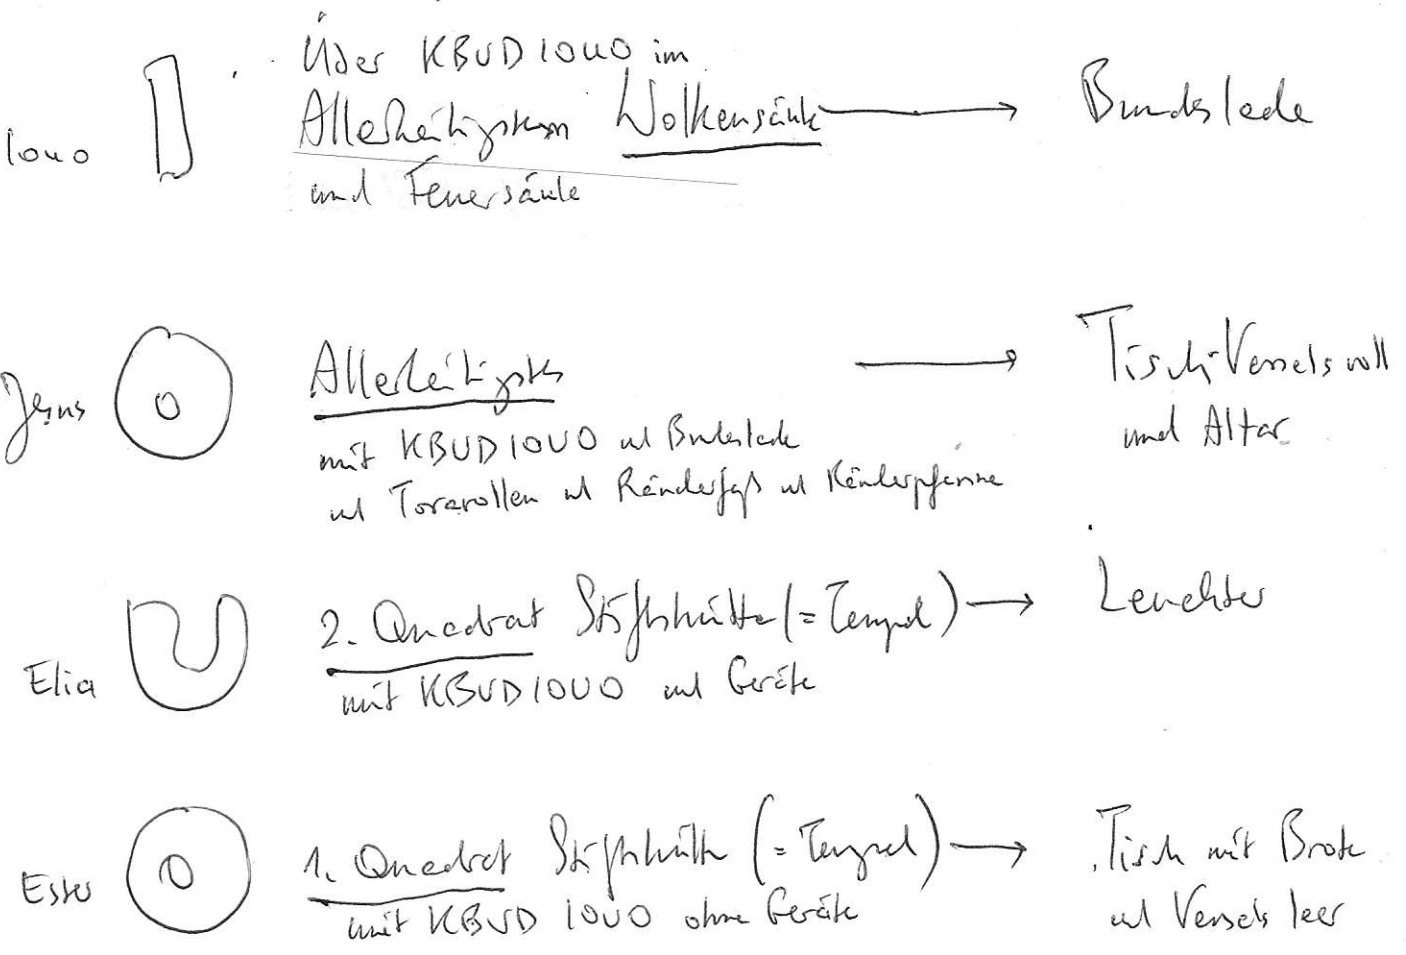 Über KBUD IOUO im
Allerheiligsten Wolkensäule → Bundeslade
IOUO
und Feuersäule
Jesus
Allerheiligstes → Tisch, Vessels voll
und Altar
mit KBUD IOUO und Bundeslade
und Torarollen und Räucherfaß und Räucherpfanne
Elia
2. Quadrat Stiftshütte (= Tempel) → Leuchter
mit KBUD IOUO und Geräte
Ester
1. Quadrat Stiftshütte (= Tempel) → Tisch mit Brote
und Vessels leer
mit KBUD IOUO ohne Geräte